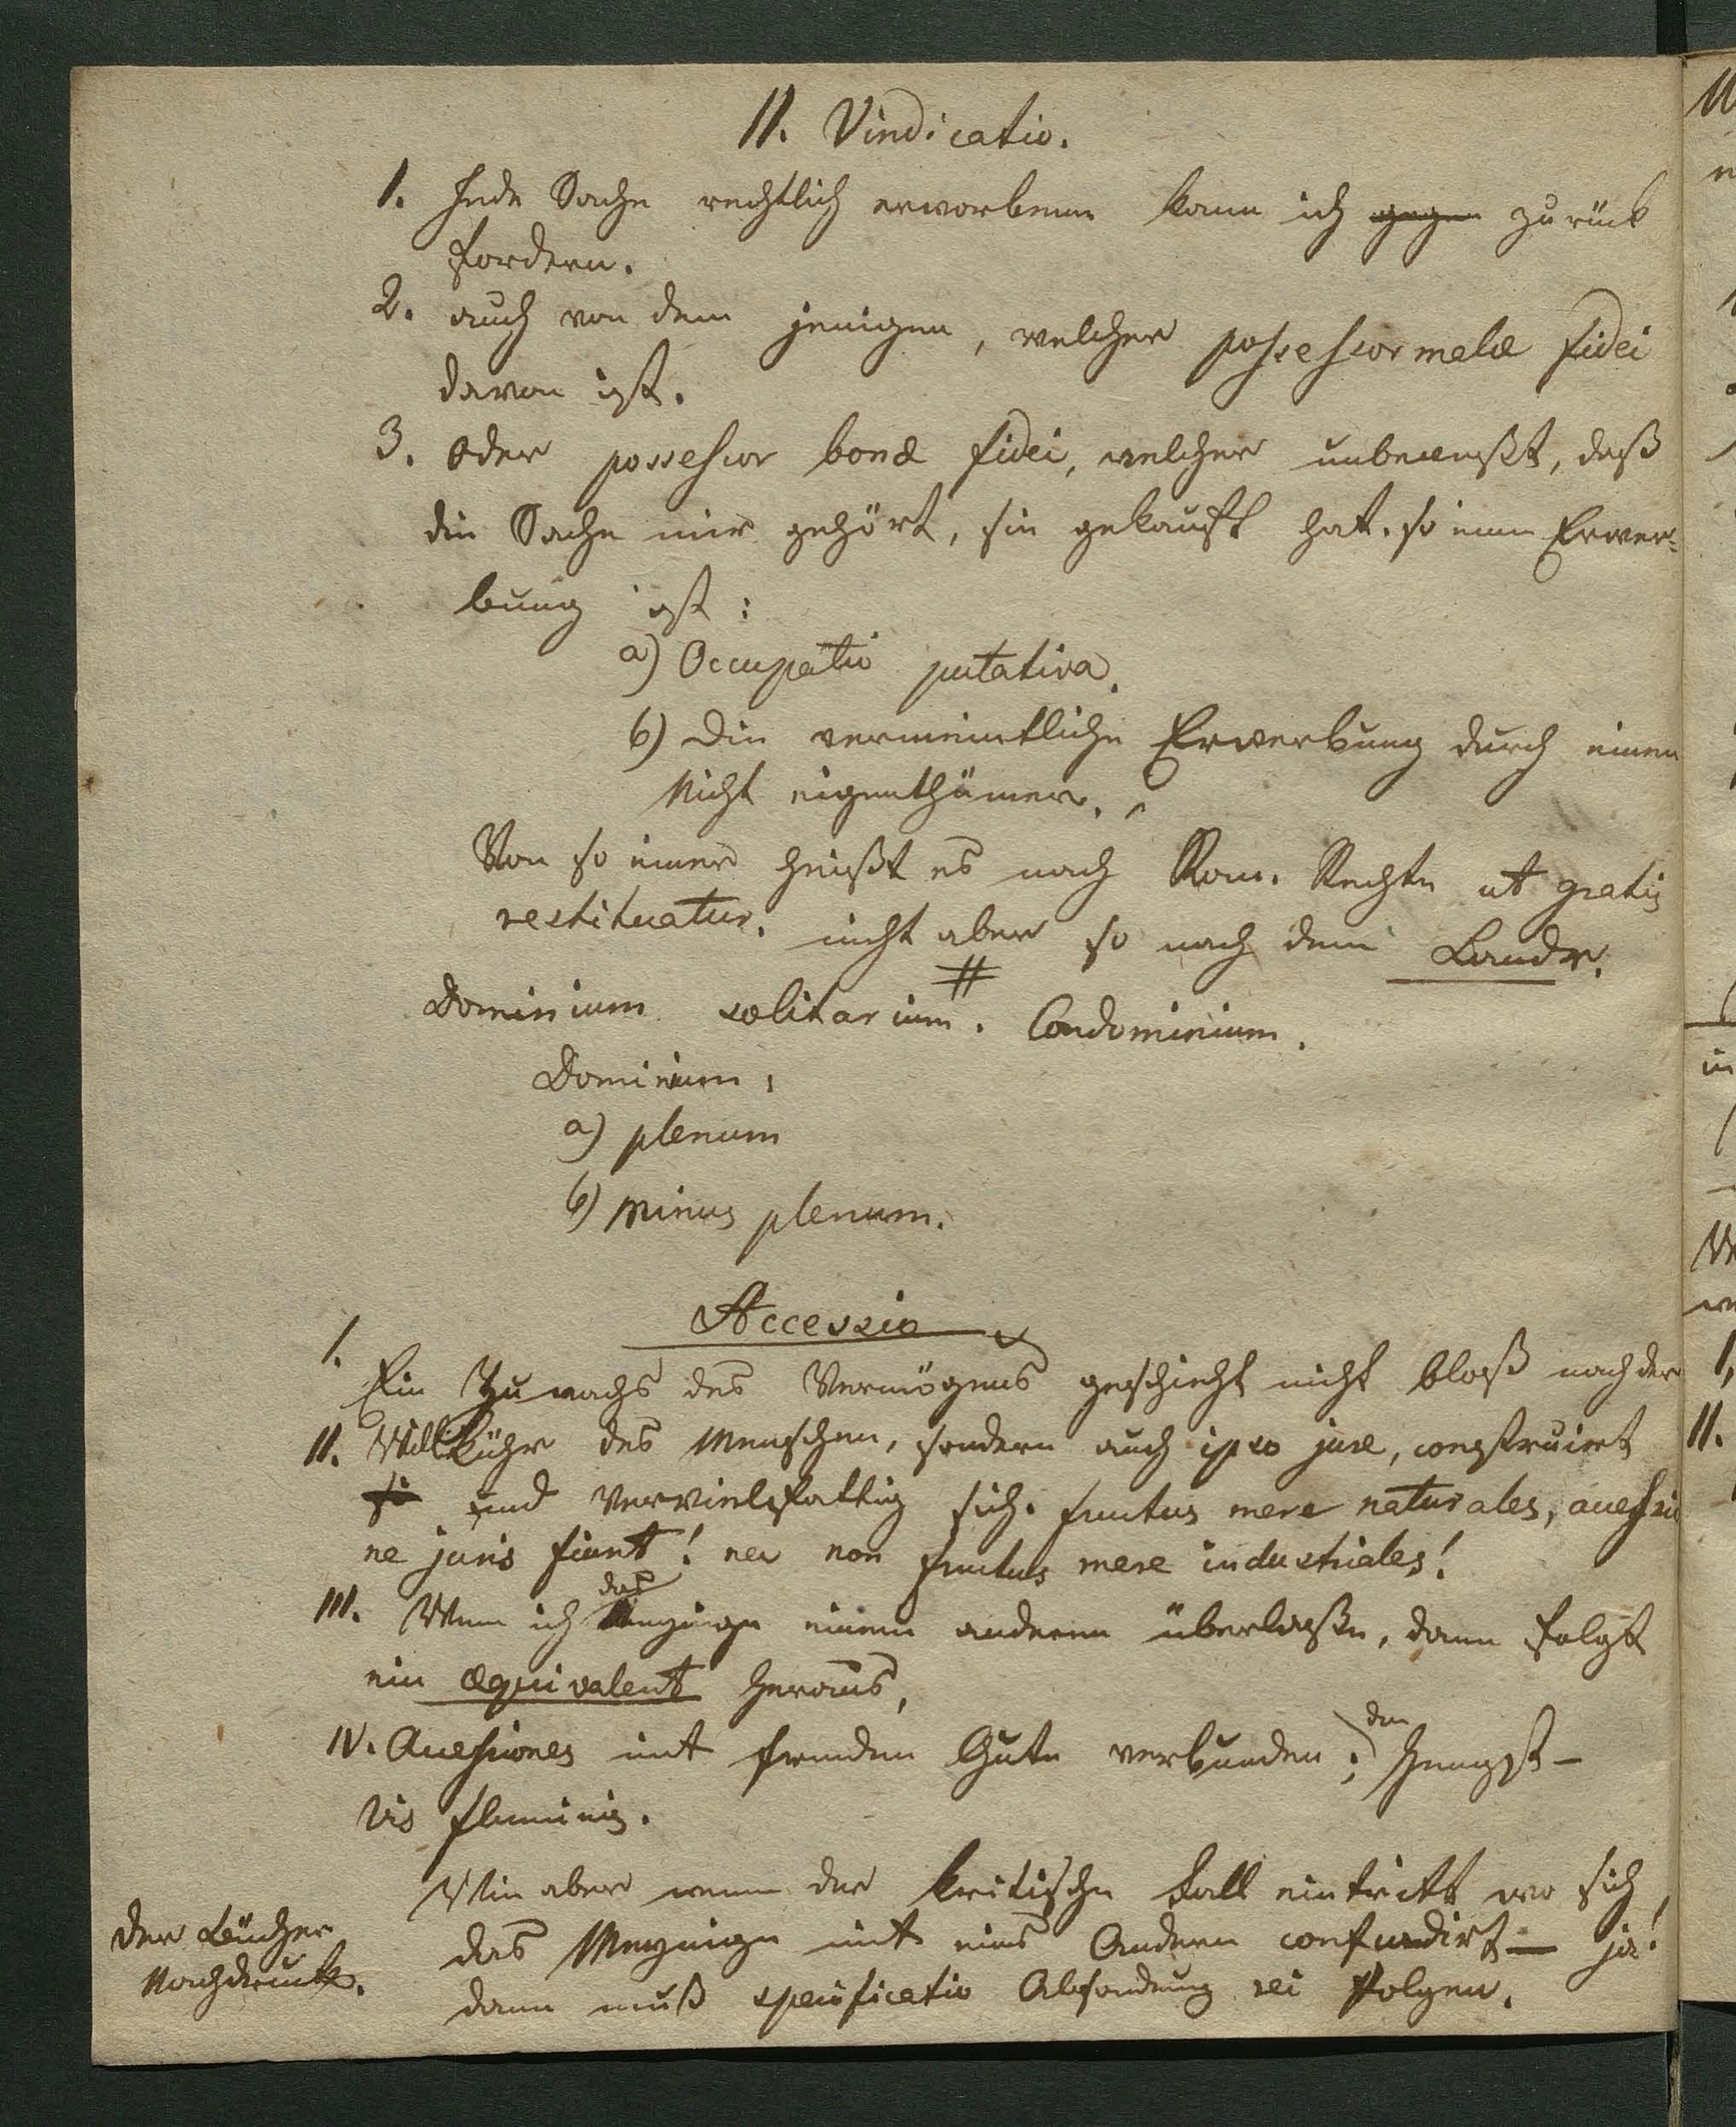 II. Vindicatio.
1. Jede Sache rechtlich erworbene kann ich gegen zurück
fordern.
2. auch von dem jenigen, welcher possessor malæ fidei
davon ist.
3. Oder possessor bonæ fidei, welcher unbewußt, daß
die Sache mir gehört, sie gekauft hat. so eine Erwer=
bung ist:
a) Occupatio putativa.
b) Die vermeintliche Erwerbung durch einen
Nicht eigenthümer.
Von so einer heißt es nach Rom. Rechte ut gratis
restituatur. nicht aber so nach dem Landr.
#
Dominium solitarium. Condominium.
Dominium,
a) plenum
b) minus plenum.
Accessio
I. Ein Zuwachs des Vermögens geschieht nicht bloß nach der
II. Willkühr des Menschen, sondern auch ipso jure, construirt
si und vervielfältig sich. fructus mere naturales, accessio
ne juris fiunt! nec non fructus mere industriales!
das
III. Wenn ich Meynige einem anderen überlaße, dann folgt
ein æquivalent heraus,
den
IV. Accessiones mit fremden Gute verbunden; Hengst –
vis fluminis.
Wie aber wenn der kritische Fall eintritt wo sich
das Meynige mit eines Andern confundirt – ja!
dann muß specificatio Absondrung rei folgen.
Der Bücher
Nachdruck.